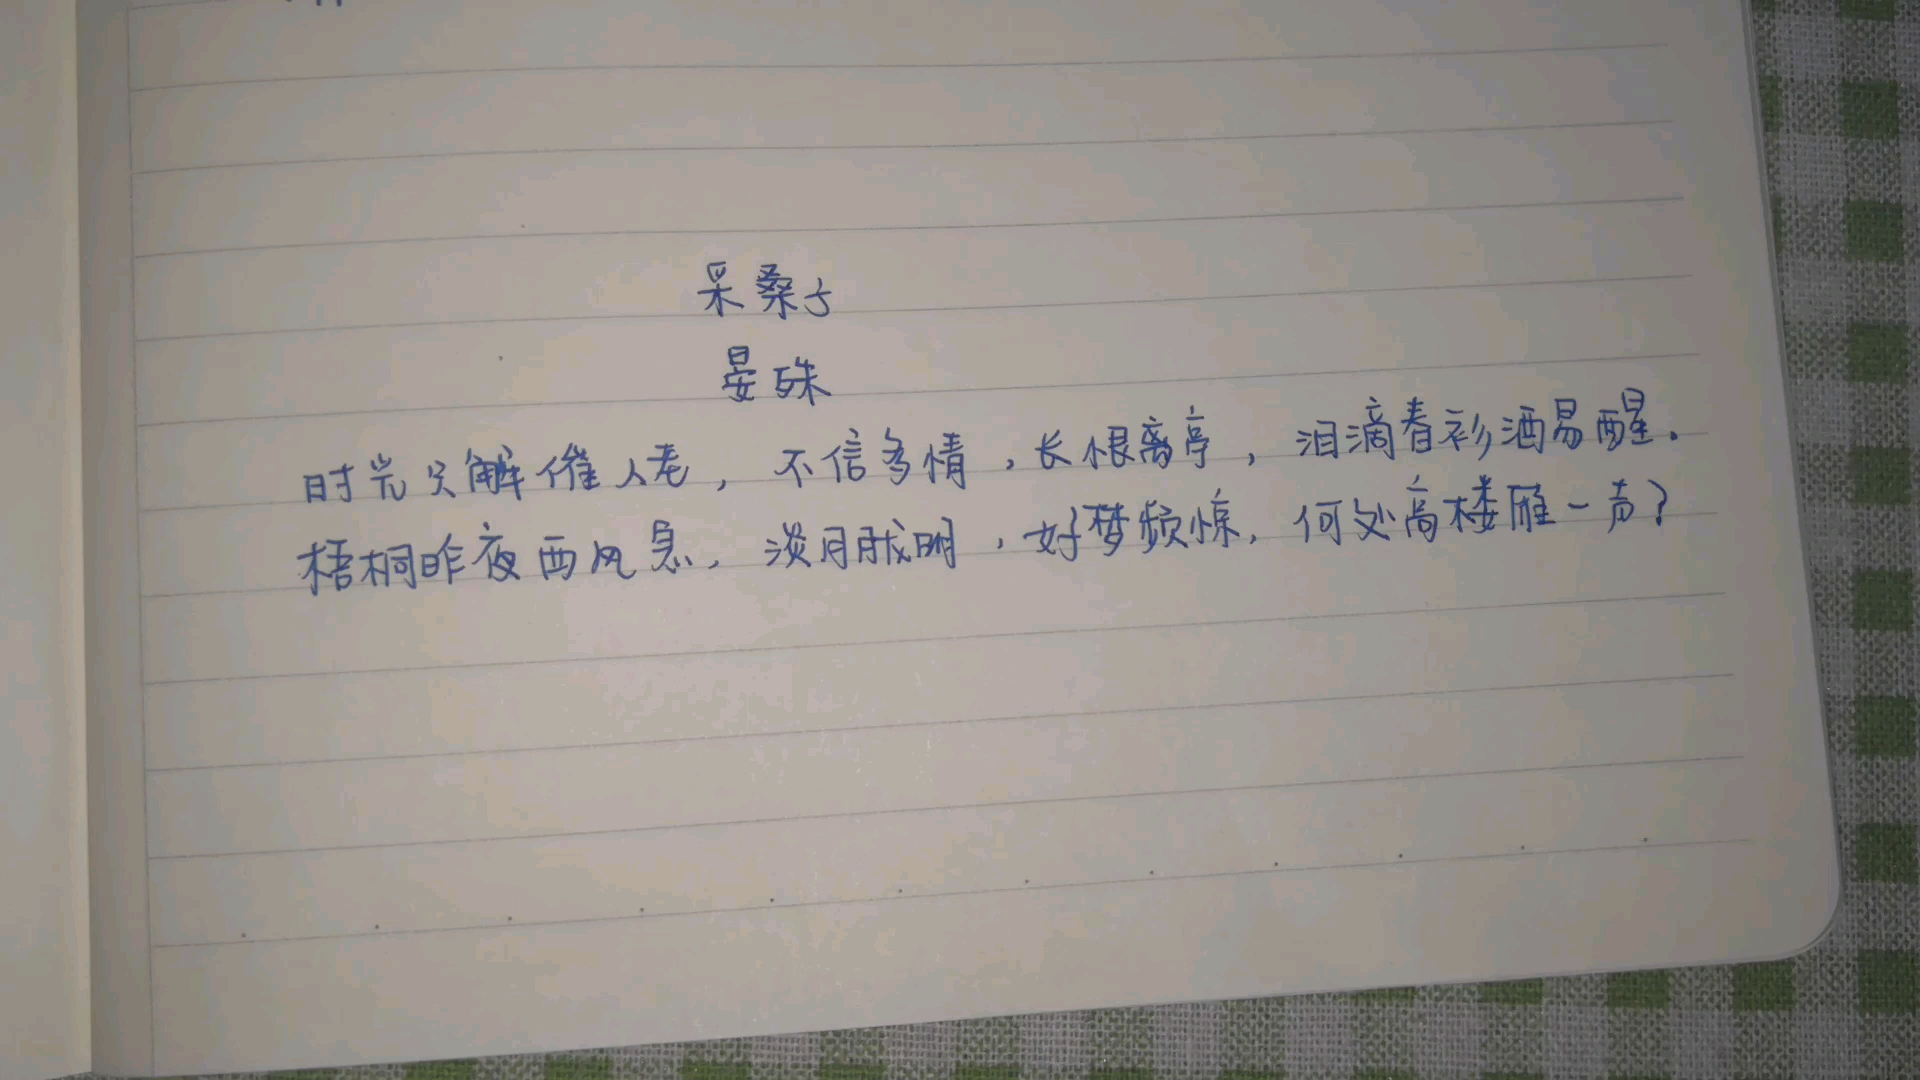 采桑子
晏殊
时光只解催人老，不信多情，长恨离亭，泪滴春衫酒易醒.
梧桐昨夜西风急，淡月胧明，好梦频惊，何处高楼雁一声？